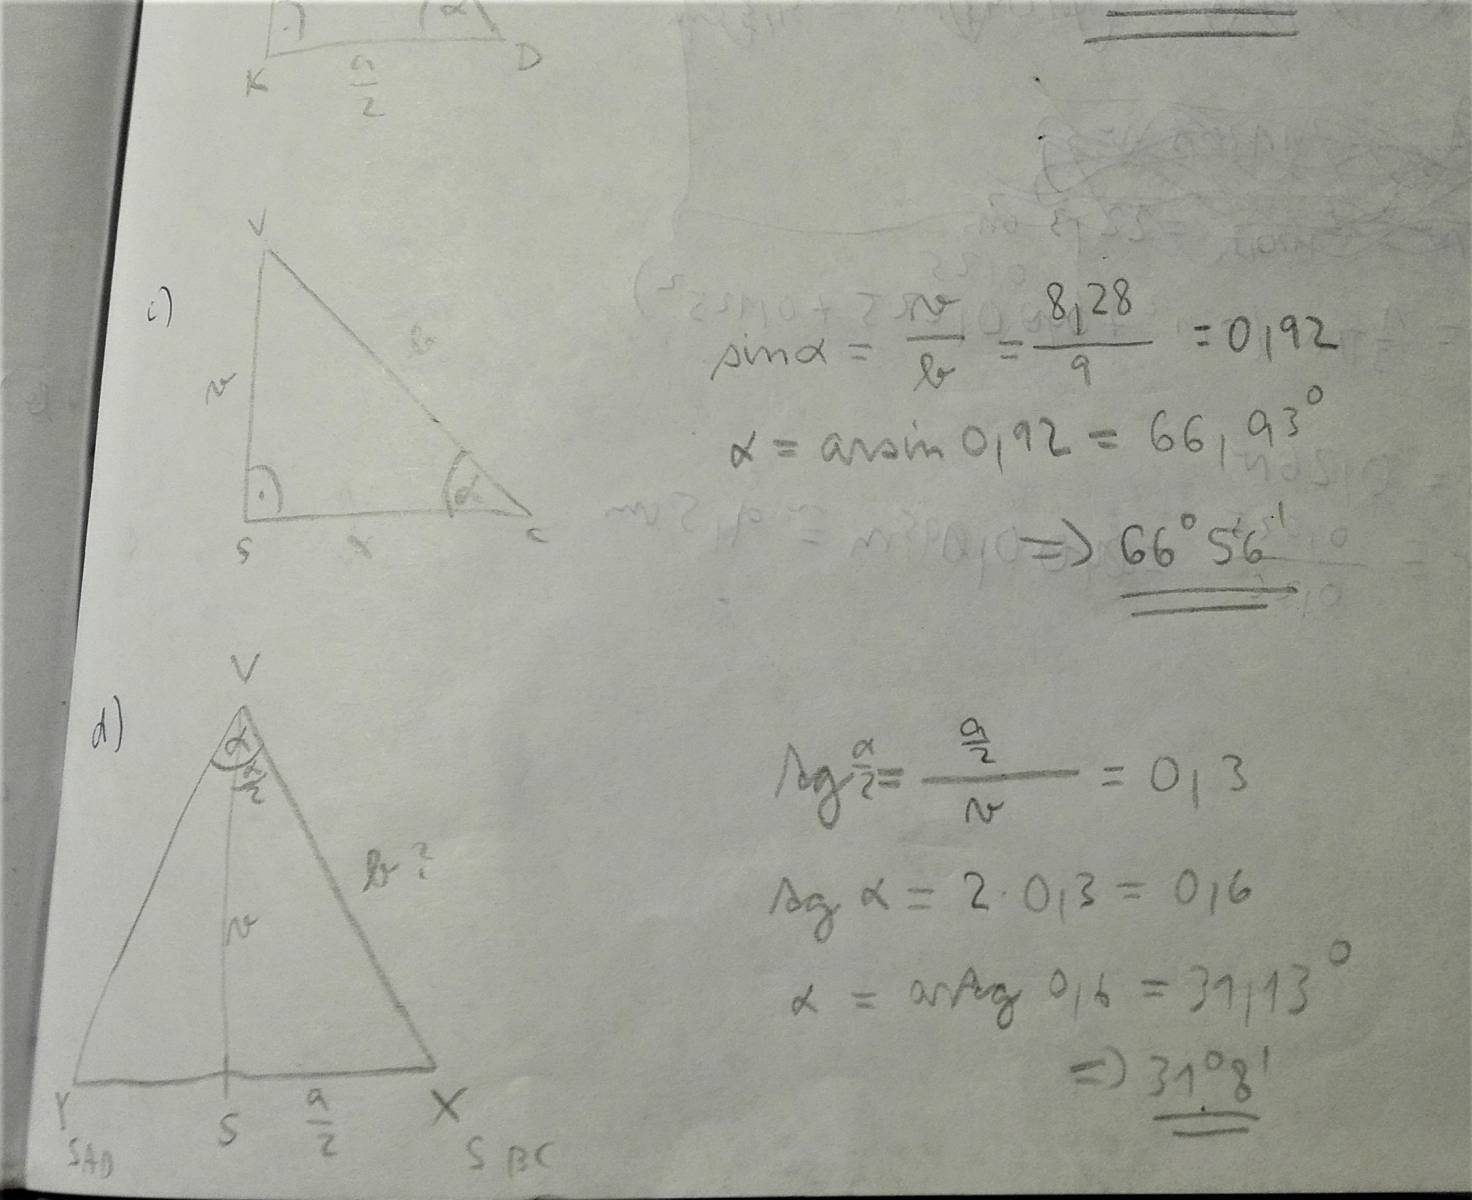 α
K
a/2
D
V
c)
b
v
α
S
x
C
sinα = v/b = 8,28/9 = 0,92
α = arsin 0,92 = 66,93°
=> 66°56'
V
d)
α
α/2
b?
v
Y
S
a/2
X
SAD
SBC
tg α/2 = a/2 / v = 0,3
tg α = 2·0,3 = 0,6
α = artg 0,6 = 31,13°
=> 31°8'